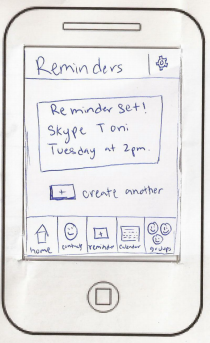 Reminders
Reminder set!
Skype Toni
Tuesday at 2pm.
create another
home
contact
reminder
calendar
groups